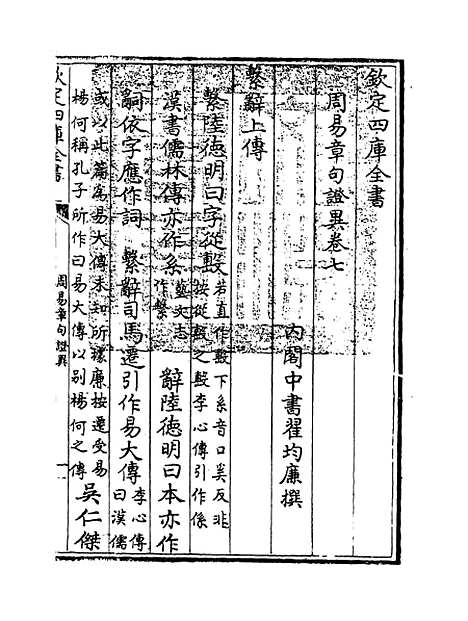 欽定四庫全書
周易章句證異卷七
內閣中書翟均廉撰
繫辭上傳
繫陸德明曰字從毄若直作毄下糸音口奚反非
按從毄之毄李心傳引作係
漢書儒林傳亦作系藝文志
作繫
辭陸德明曰本亦作
詞依字應作詞
繫辭司馬遷引作易大傳李心傳
曰漢儒
或以此篇為易大傳未知所據廉按遷受易
楊何稱孔子所作曰易大傳以别楊何之傳
吳仁傑
欽定四庫全書
周易章句證異
一